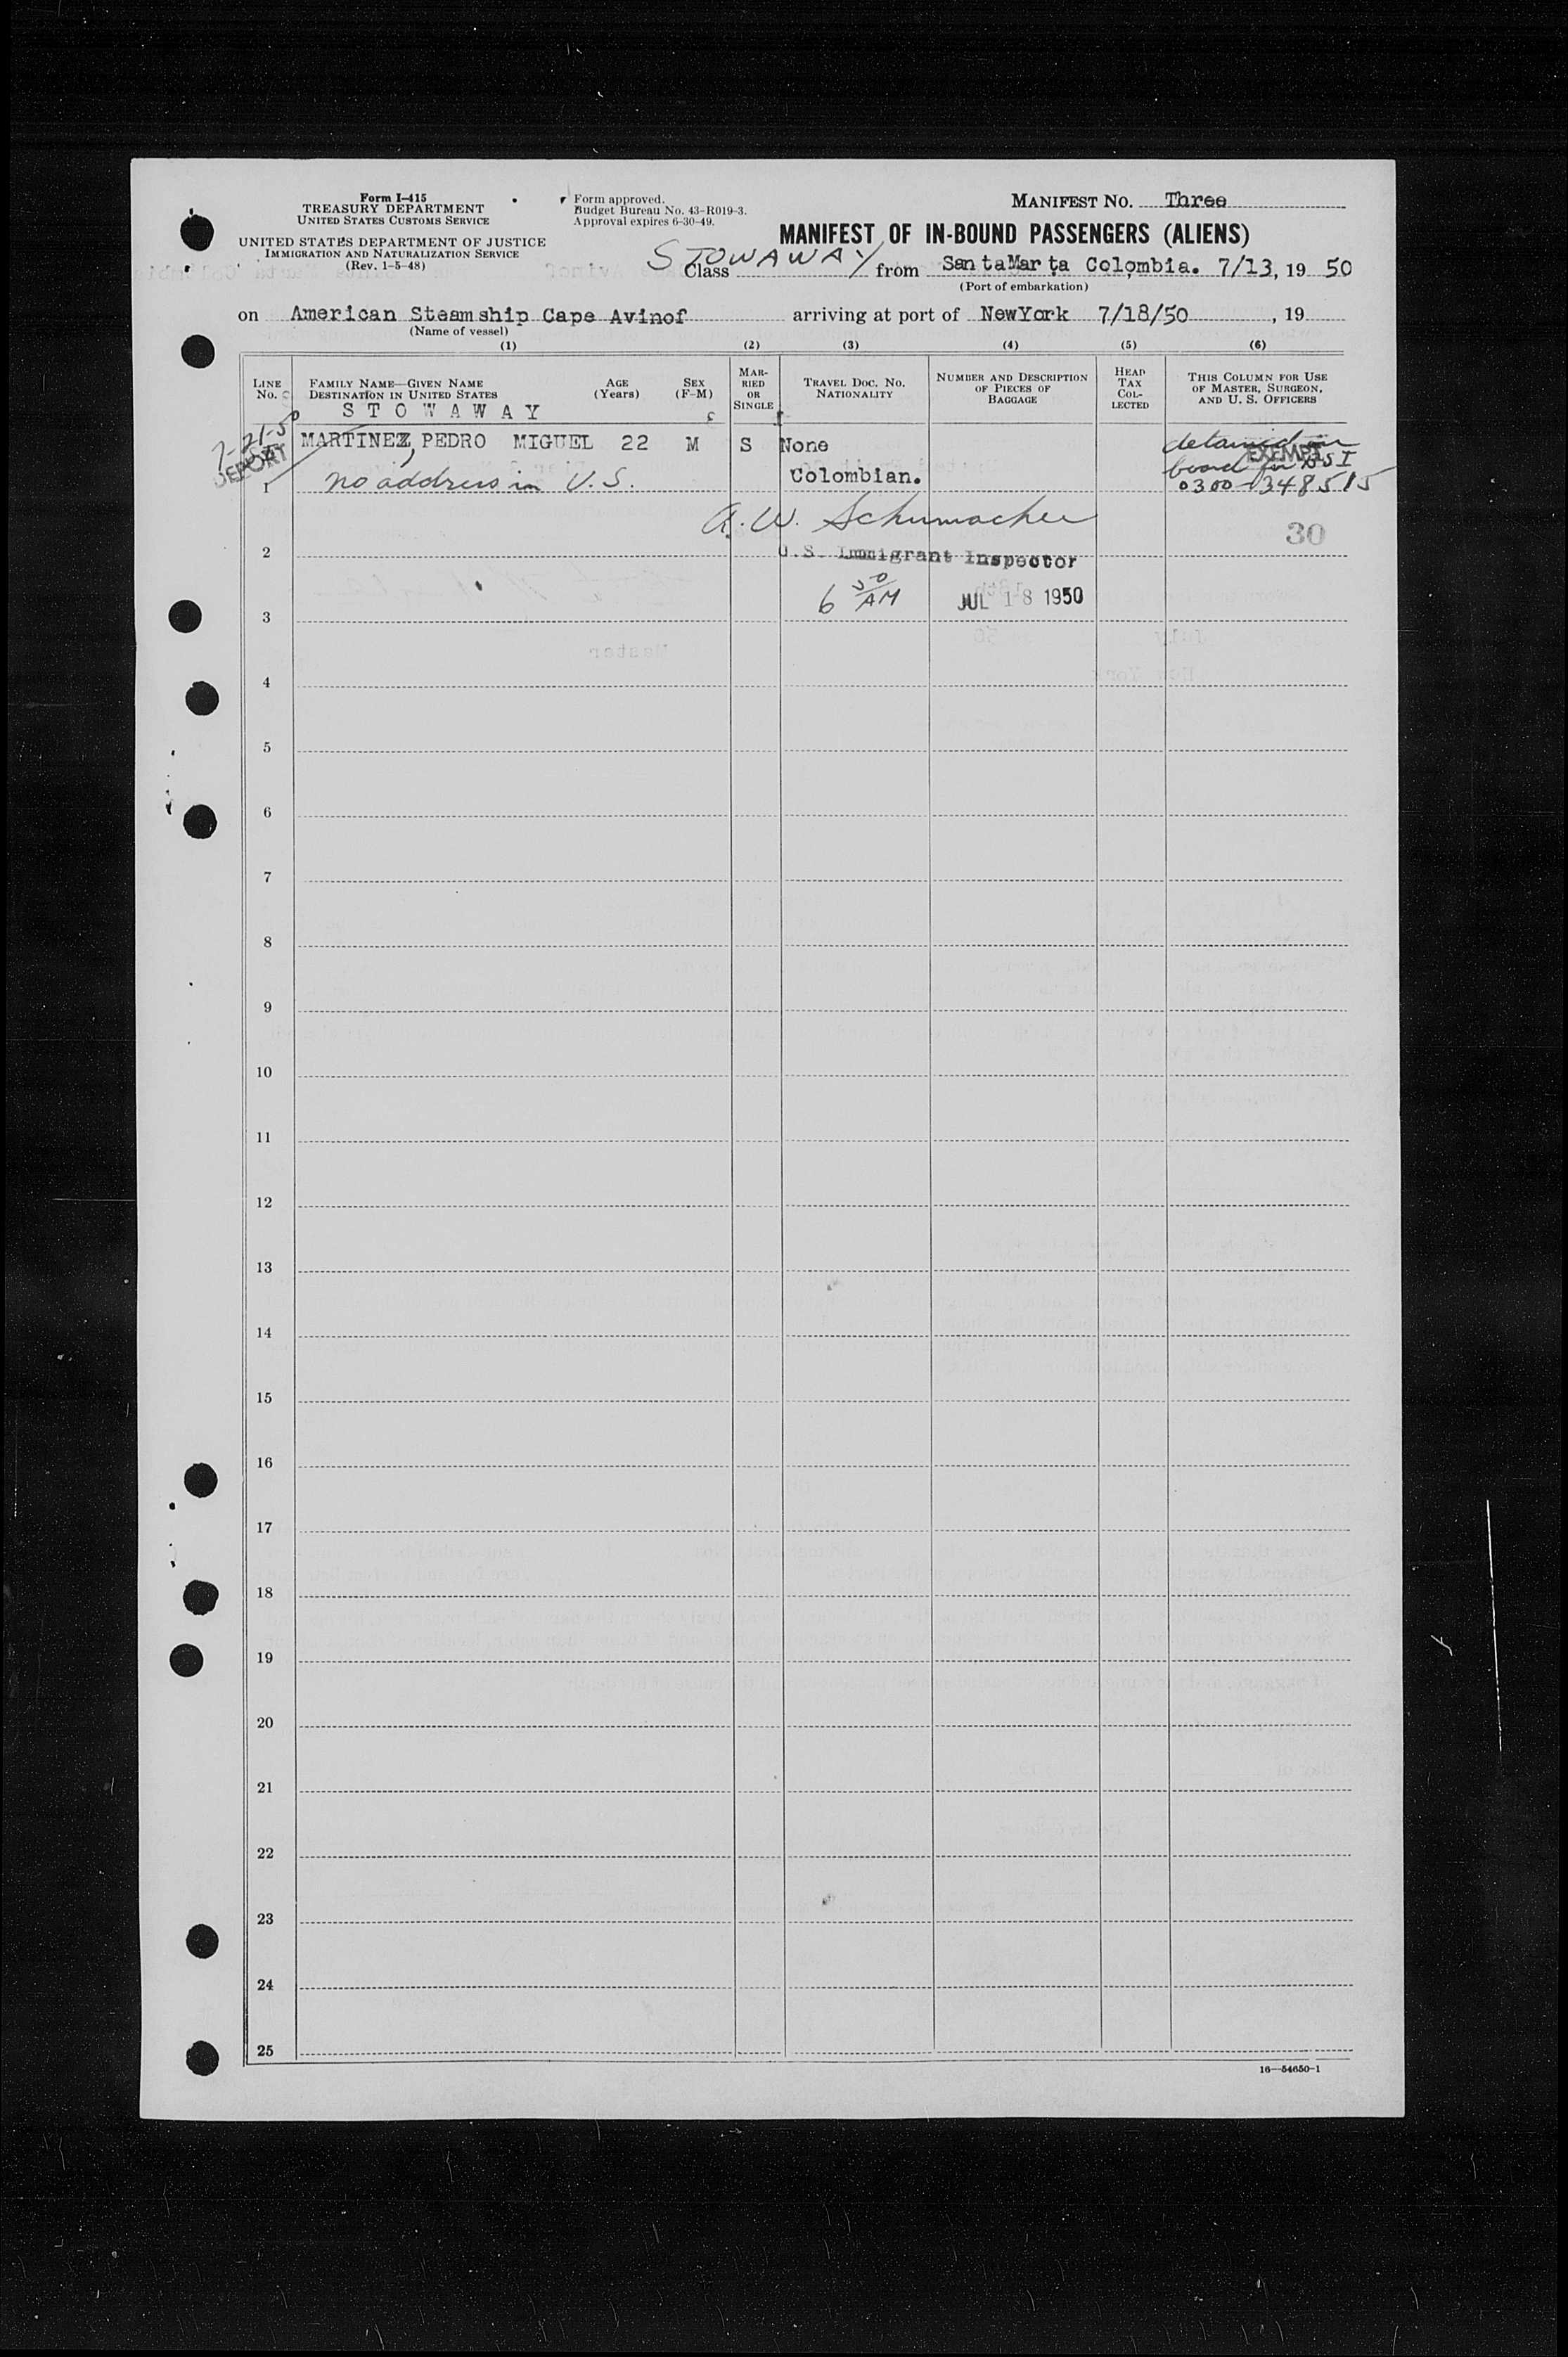 Form I-415
TREASURY DEPARTMENT
UNITED STATES CUSTOMS SERVICE
UNITED STATES DEPARTMENT OF JUSTICE
IMMIGRATION AND NATURALIZATION SERVICE
(Rev. 1-5-48)
Form approved.
Budget Bureau No. 43-R019-3.
Approval expires 6-30-49.
MANIFEST NO. Three
MANIFEST OF IN-BOUND PASSENGERS (ALIENS)
Class STOWAWAY from Santa Marta Colombia. 7/13, 19 50
(Port of embarkation)
on American Steamship Cape Avinof arriving at port of NewYork 7/18/50, 19
(Name of vessel)
(1) (2) (3) (4) (5) (6)
LINE NO. FAMILY NAME—GIVEN NAME DESTINATION IN UNITED STATES AGE (Years) SEX (F-M) MARRIED OR SINGLE TRAVEL DOC. NO. NATIONALITY NUMBER AND DESCRIPTION OF PIECES OF BAGGAGE HEAD TAX COLLECTED THIS COLUMN FOR USE OF MASTER, SURGEON, AND U. S. OFFICERS
S T O W A W A Y
7-21-50
DEPORT
MARTINEZ, PEDRO MIGUEL 22 M S None detained on
EXEMPT
1 no address in U.S. Colombian. board for BSI
0300-348515
A. W. Schumacher
30
2 U.S. Immigrant Inspector
3 6 50 AM JUL 18 1950
4
5
6
7
8
9
10
11
12
13
14
15
16
17
18
19
20
21
22
23
24
25
16—54650-1